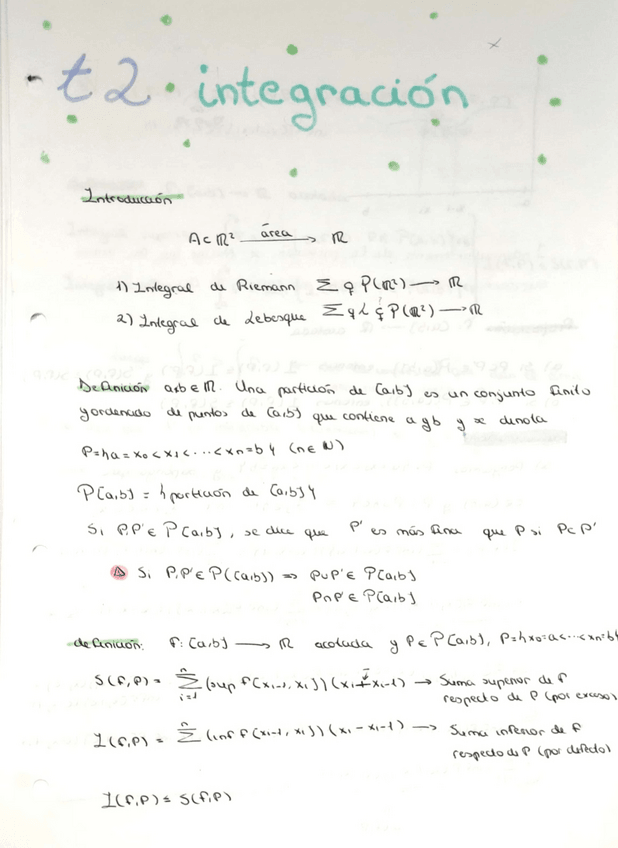 t2 · integración
Introducción
A⊂ℝ² área → ℝ
1) Integral de Riemann Σ ⊊ P(ℝ²) → ℝ
2) Integral de Lebesgue Σ ⊊ L ⊊ P(ℝ²) → ℝ
Definición a,b∈ℝ. Una partición de [a,b] es un conjunto finito
y ordenado de puntos de [a,b] que contiene a y b y se denota
P={a=x₀<x₁<...<xn=b} (n∈ℕ)
P[a,b] = {partición de [a,b]}
Si P,P'∈P[a,b], se dice que P' es más fina que P si P⊂P'
Si P,P'∈P([a,b]) ⇒ P∪P'∈P[a,b]
P∩P'∈P[a,b]
definición: f:[a,b] → ℝ acotada y P∈P[a,b], P={x₀=a<...<xn=b}
S(f,P) = Σ i=1 n (sup f[xi-1, xi])(xi - xi-1) → Suma superior de f
respecto de P (por exceso)
I(f,P) = Σ n (inf f[xi-1, xi])(xi - xi-1) → Suma inferior de f
respecto de P (por defecto)
I(f,P) ≤ S(f,P)